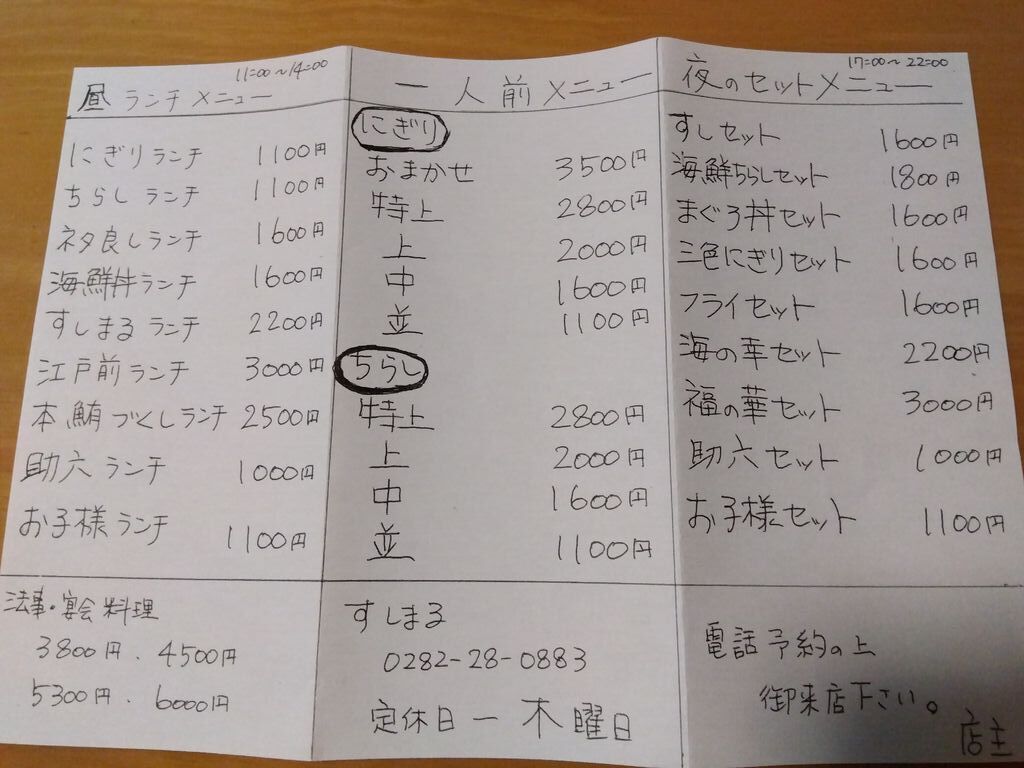 昼 ランチ メニュー 11:00～14:00
にぎりランチ 1100円
ちらしランチ 1100円
ネタ良しランチ 1600円
海鮮丼ランチ 1600円
すしまるランチ 2200円
江戸前ランチ 3000円
本鮪づくしランチ 2500円
助六ランチ 1000円
お子様ランチ 1100円
法事・宴会料理
3800円、4500円
5300円、6000円
一人前メニュー
にぎり
おまかせ 3500円
特上 2800円
上 2000円
中 1600円
並 1100円
ちらし
特上 2800円
上 2000円
中 1600円
並 1100円
すしまる
0282-28-0883
定休日ー木曜日
夜のセットメニュー 17:00～22:00
すしセット 1600円
海鮮ちらしセット 1800円
まぐろ丼セット 1600円
三色にぎりセット 1600円
フライセット 1600円
海の幸セット 2200円
福の華セット 3000円
助六セット 1000円
お子様セット 1100円
電話予約の上
御来店下さい。
店主